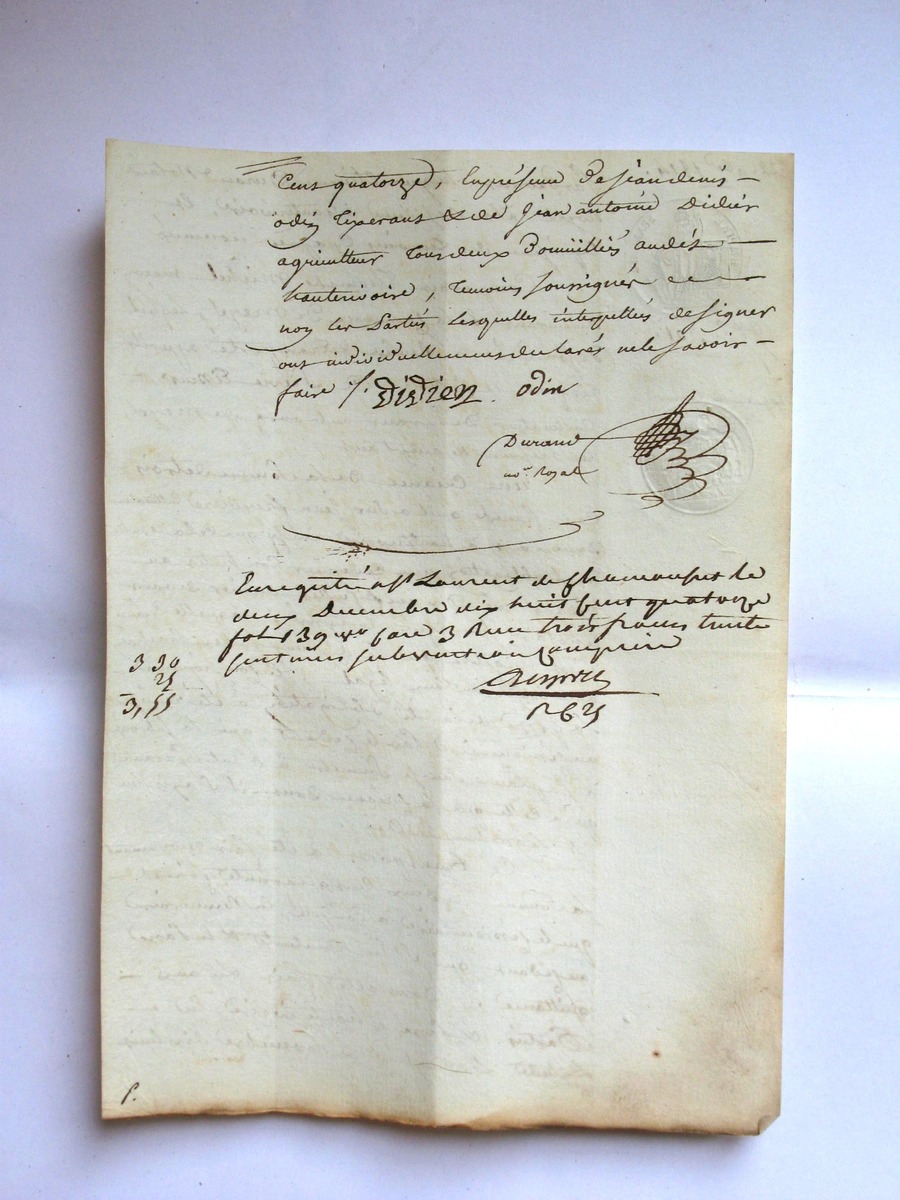 Cent quatorze, En présence de jean denis
odin Tixerant & de jean antoine Didier
agriculteur tous deux Domiciliés audit
hauterivoire, temoins soussignés et
non les Parties lesquelles interpellés de signer
ont individuellement déclarés ne le savoir
faire /. DiDier odin
Durand
no.re Royal
Enregistré a St Laurent de Chamousset le
deux Decembre dix huit Cent quatorze
fol 139 vo Case 3 Recu trois francs trente
Centimes subvention Comprise
3 30
25
3,55